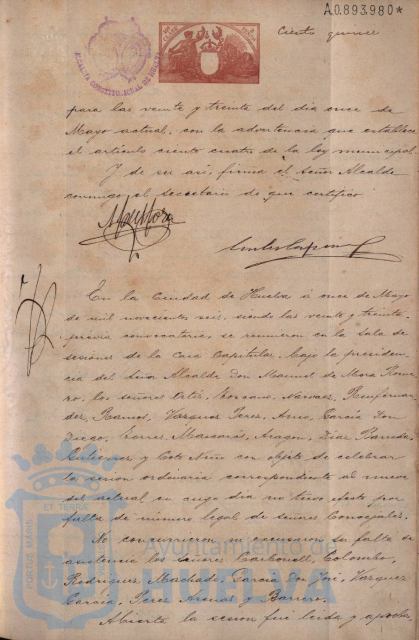 A.0.893.980*
Ciento quince
ALCALDIA CONSTITUCIONAL DE HUELVA
para las veinte y treinta del dia once de
Mayo actual, con la advertencia que establece
el artículo ciento cuatro de la ley municipal.
Y de ser asi, firma el Señor Alcalde
conmigo el secretario de que certifico
En la Ciudad de Huelva á once de Mayo
de mil novecientos seis, siendo las veinte y treinta
previa convocatoria, se reunieron en la sala de
sesiones de la Casa Capitular bajo la presiden-
cia del Señor Alcalde Don Manuel de Mora Rome-
ro, los señores Ortiz, Narvaez,
Ramos, Vazquez Perez, García Don
Diego, Aragon, Diaz
Gutierrez y Coto con objeto de celebrar
la sesion ordinaria correspondiente al nueve
del actual en cuyo dia no tuvo efecto por
falta de número legal de señores Concejales.
No concurrieron ni excusaron su falta de
asistencia los señores Carbonell, Colombo,
Rodriguez Machado, García Don José, Vazquez
García, Perez y Barrero.
Abierta la sesion fué leida y aproba
PORTUS MARIS ET TERRAE
Ayuntamiento de
HUELVA